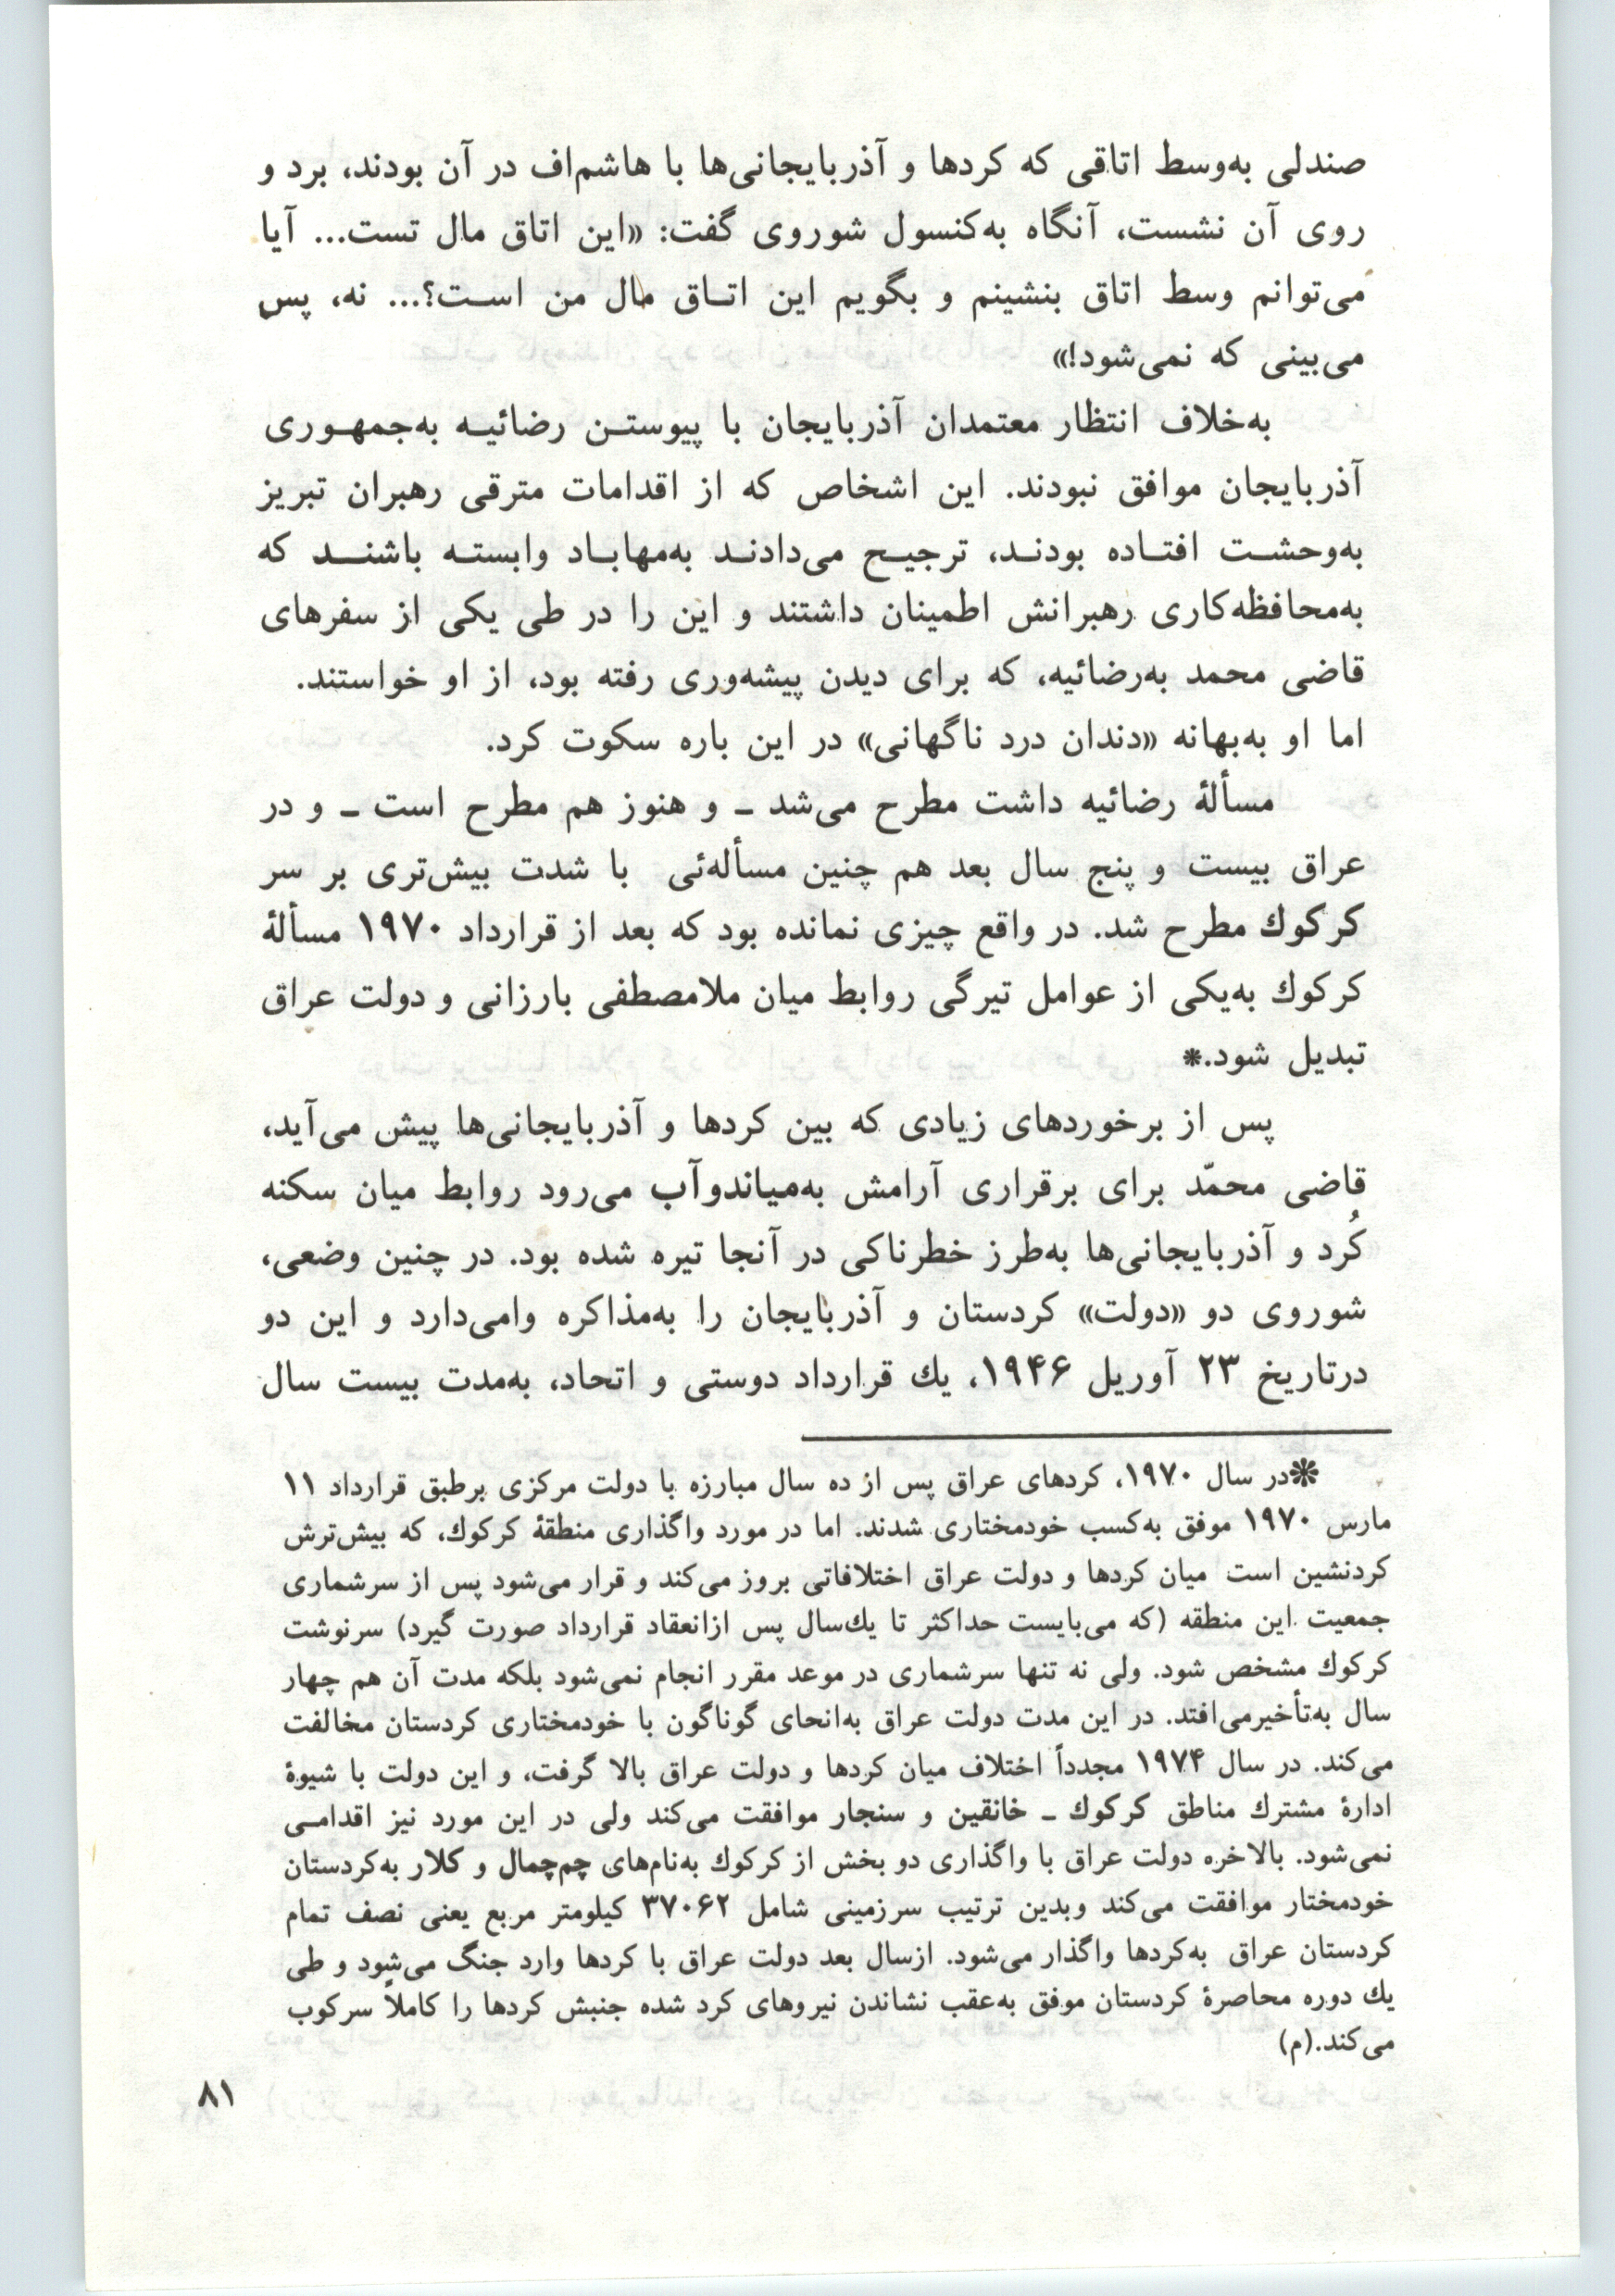 صندلی به‌وسط اتاقی که کردها و آذربایجانی‌ها با هاشم‌اف در آن بودند، برد و
روی آن نشست، آنگاه به‌کنسول شوروی گفت: «این اتاق مال تست... آیا
می‌توانم وسط اتاق بنشینم و بگویم این اتـاق مال من اسـت؟... نه، پس
می‌بینی که نمی‌شود!»
به‌خلاف انتظار معتمدان آذربایجان با پیوستـن رضائیـه به‌جمهـوری
آذربایجان موافق نبودند. این اشخاص که از اقدامات مترقی رهبران تبریز
به‌وحشـت افتـاده بودنـد، ترجیـح می‌دادنـد به‌مهابـاد وابستـه باشنـد که
به‌محافظه‌کاری رهبرانش اطمینان داشتند و این را در طی یکی از سفرهای
قاضی محمد به‌رضائیه، که برای دیدن پیشه‌وری رفته بود، از او خواستند.
اما او به‌بهانه «دندان درد ناگهانی» در این باره سکوت کرد.
مسألهٔ رضائیه داشت مطرح می‌شد ـ و هنوز هم مطرح است ـ و در
عراق بیست و پنج سال بعد هم چنین مسأله‌ئی با شدت بیش‌تری بر سر
کرکوك مطرح شد. در واقع چیزی نمانده بود که بعد از قرارداد ۱۹۷۰ مسألهٔ
کرکوك به‌یکی از عوامل تیرگی روابط میان ملامصطفی بارزانی و دولت عراق
تبدیل شود.*
پس از برخوردهای زیادی که بین کردها و آذربایجانی‌ها پیش می‌آید،
قاضی محمّد برای برقراری آرامش به‌میاندوآب می‌رود روابط میان سکنه
کُرد و آذربایجانی‌ها به‌طرز خطرناکی در آنجا تیره شده بود. در چنین وضعی،
شوروی دو «دولت» کردستان و آذربایجان را به‌مذاکره وامی‌دارد و این دو
درتاریخ ۲۳ آوریل ۱۹۴۶، یك قرارداد دوستی و اتحاد، به‌مدت بیست سال
*در سال ۱۹۷۰، کردهای عراق پس از ده سال مبارزه با دولت مرکزی برطبق قرارداد ۱۱
مارس ۱۹۷۰ موفق به‌کسب خودمختاری شدند. اما در مورد واگذاری منطقهٔ کرکوك، که بیش‌ترش
کردنشین است میان کردها و دولت عراق اختلافاتی بروز می‌کند و قرار می‌شود پس از سرشماری
جمعیت این منطقه (که می‌بایست حداکثر تا یك‌سال پس ازانعقاد قرارداد صورت گیرد) سرنوشت
کرکوك مشخص شود. ولی نه تنها سرشماری در موعد مقرر انجام نمی‌شود بلکه مدت آن هم چهار
سال به‌تأخیرمی‌افتد. در این مدت دولت عراق به‌انحای گوناگون با خودمختاری کردستان مخالفت
می‌کند. در سال ۱۹۷۴ مجدداً اختلاف میان کردها و دولت عراق بالا گرفت، و این دولت با شیوهٔ
ادارهٔ مشترك مناطق کرکوك ـ خانقین و سنجار موافقت می‌کند ولی در این مورد نیز اقدامـی
نمی‌شود. بالاخره دولت عراق با واگذاری دو بخش از کرکوك به‌نام‌های چم‌چمال و کلار به‌کردستان
خودمختار موافقت می‌کند وبدین ترتیب سرزمینی شامل ۳۷۰۶۲ کیلومتر مربع یعنی نصف تمام
کردستان عراق به‌کردها واگذار می‌شود. ازسال بعد دولت عراق با کردها وارد جنگ می‌شود و طی
یك دوره محاصرهٔ کردستان موفق به‌عقب نشاندن نیروهای کرد شده جنبش کردها را کاملاً سرکوب
می‌کند.(م)
۸۱